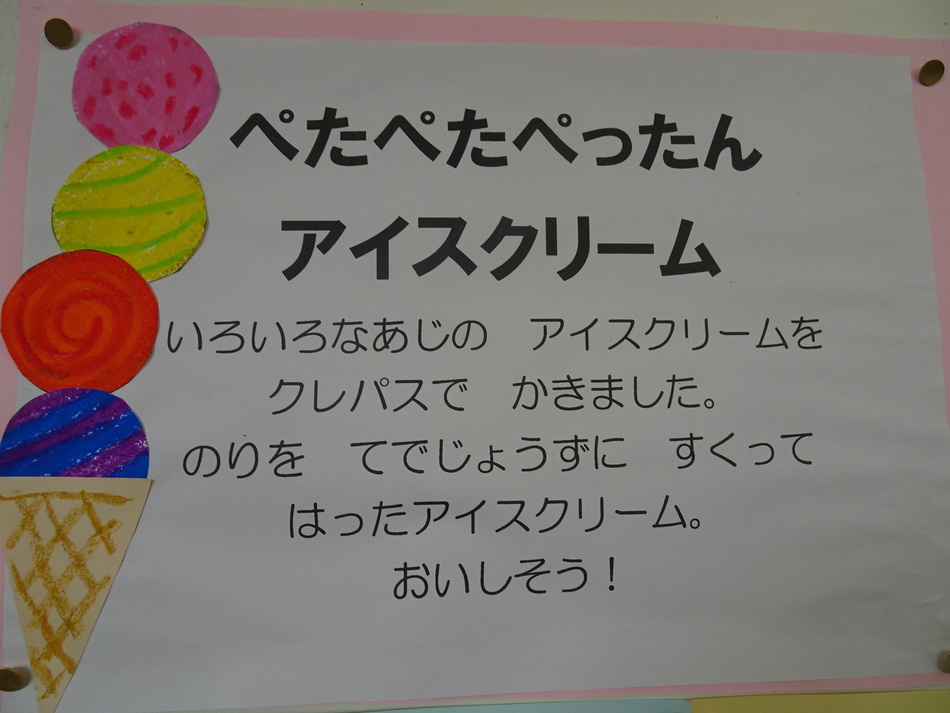 ぺたぺたぺったん
アイスクリーム
いろいろなあじの　アイスクリームを
クレパスで　かきました。
のりを　てでじょうずに　すくって
はったアイスクリーム。
おいしそう！